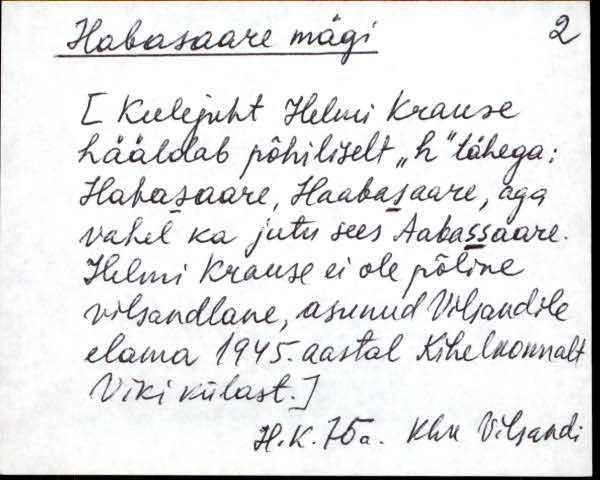 Habasaare mägi 2
[Keelejuht Helmi Krause
hääldab põhiliselt „h" tähega:
Habasaare, Haabasaare, aga
vahel ka jutu sees Aabassaare.
Helmi Krause ei ole põline
vilsandlane, asunud Vilsandile
elama 1945. aastal Kihelkonnalt
Viki külast.]
H.K. 75a. Khn Vilsandi